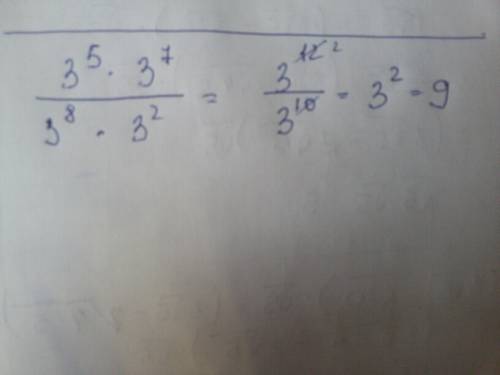 3^5 · 3^7 / 3^8 · 3^2 = 3^12 2 / 3^10 = 3^2 = 9